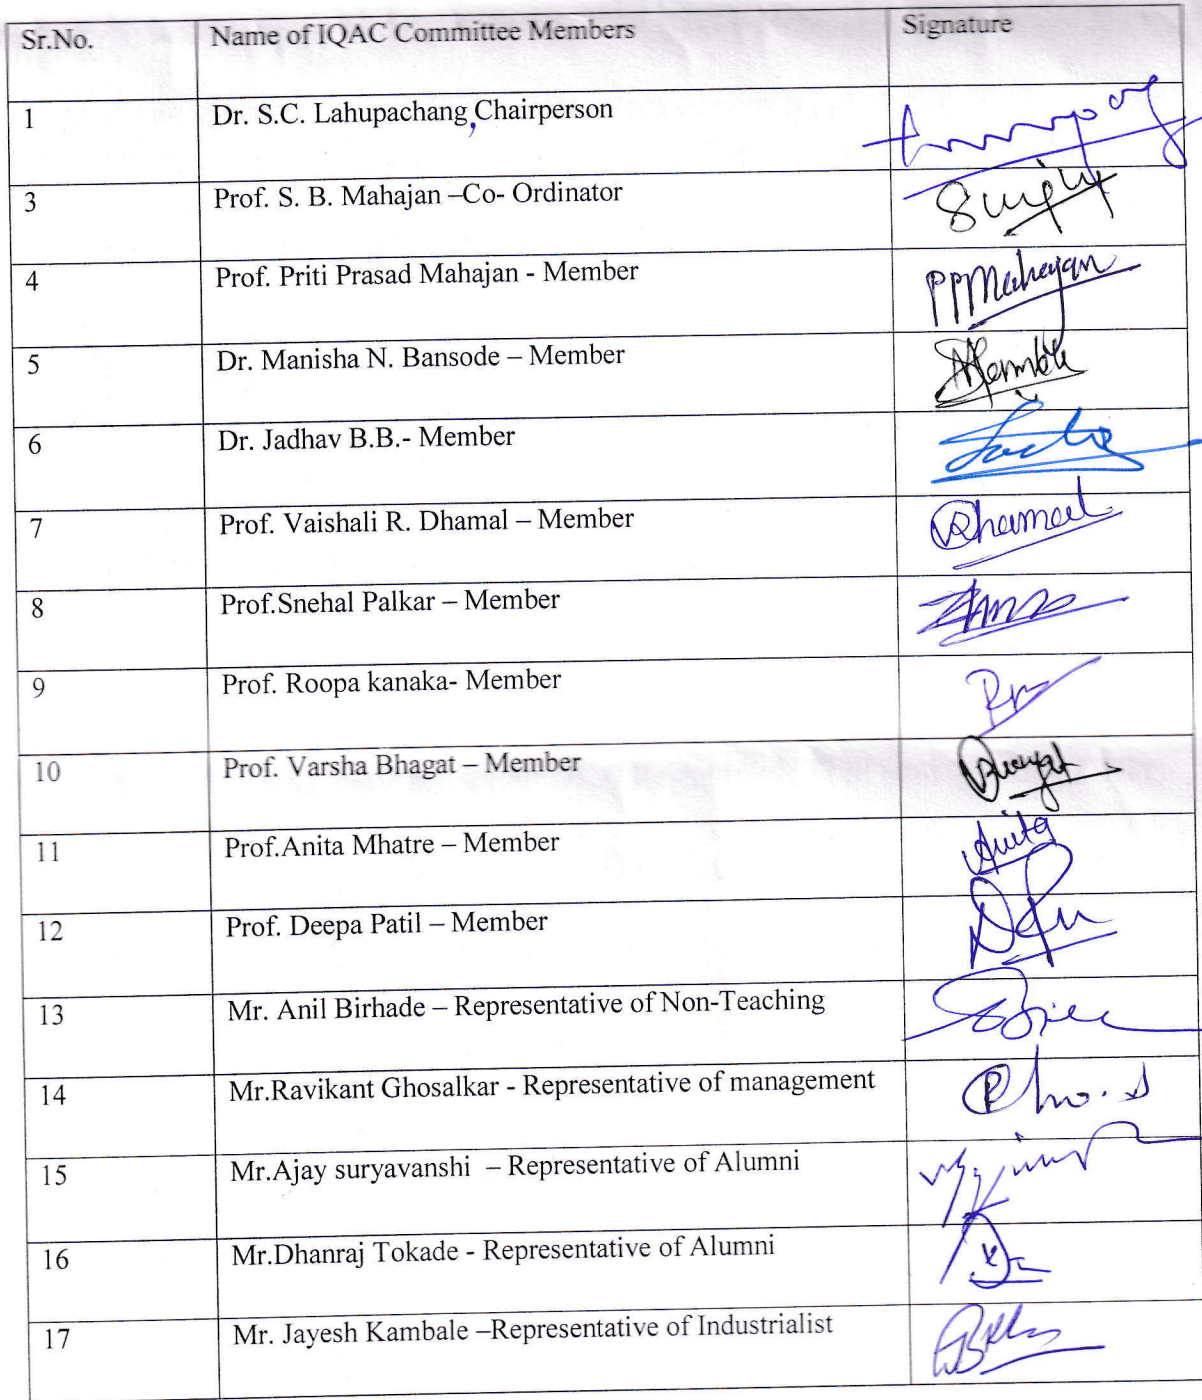 Sr.No. Name of IQAC Committee Members Signature
1 Dr. S.C. Lahupachang,Chairperson
3 Prof. S. B. Mahajan –Co- Ordinator
4 Prof. Priti Prasad Mahajan - Member PPMahajan
5 Dr. Manisha N. Bansode – Member
6 Dr. Jadhav B.B.- Member
7 Prof. Vaishali R. Dhamal – Member
8 Prof.Snehal Palkar – Member
9 Prof. Roopa kanaka- Member
10 Prof. Varsha Bhagat – Member
11 Prof.Anita Mhatre – Member Anita
12 Prof. Deepa Patil – Member
13 Mr. Anil Birhade – Representative of Non-Teaching
14 Mr.Ravikant Ghosalkar - Representative of management
15 Mr.Ajay suryavanshi – Representative of Alumni
16 Mr.Dhanraj Tokade - Representative of Alumni
17 Mr. Jayesh Kambale –Representative of Industrialist